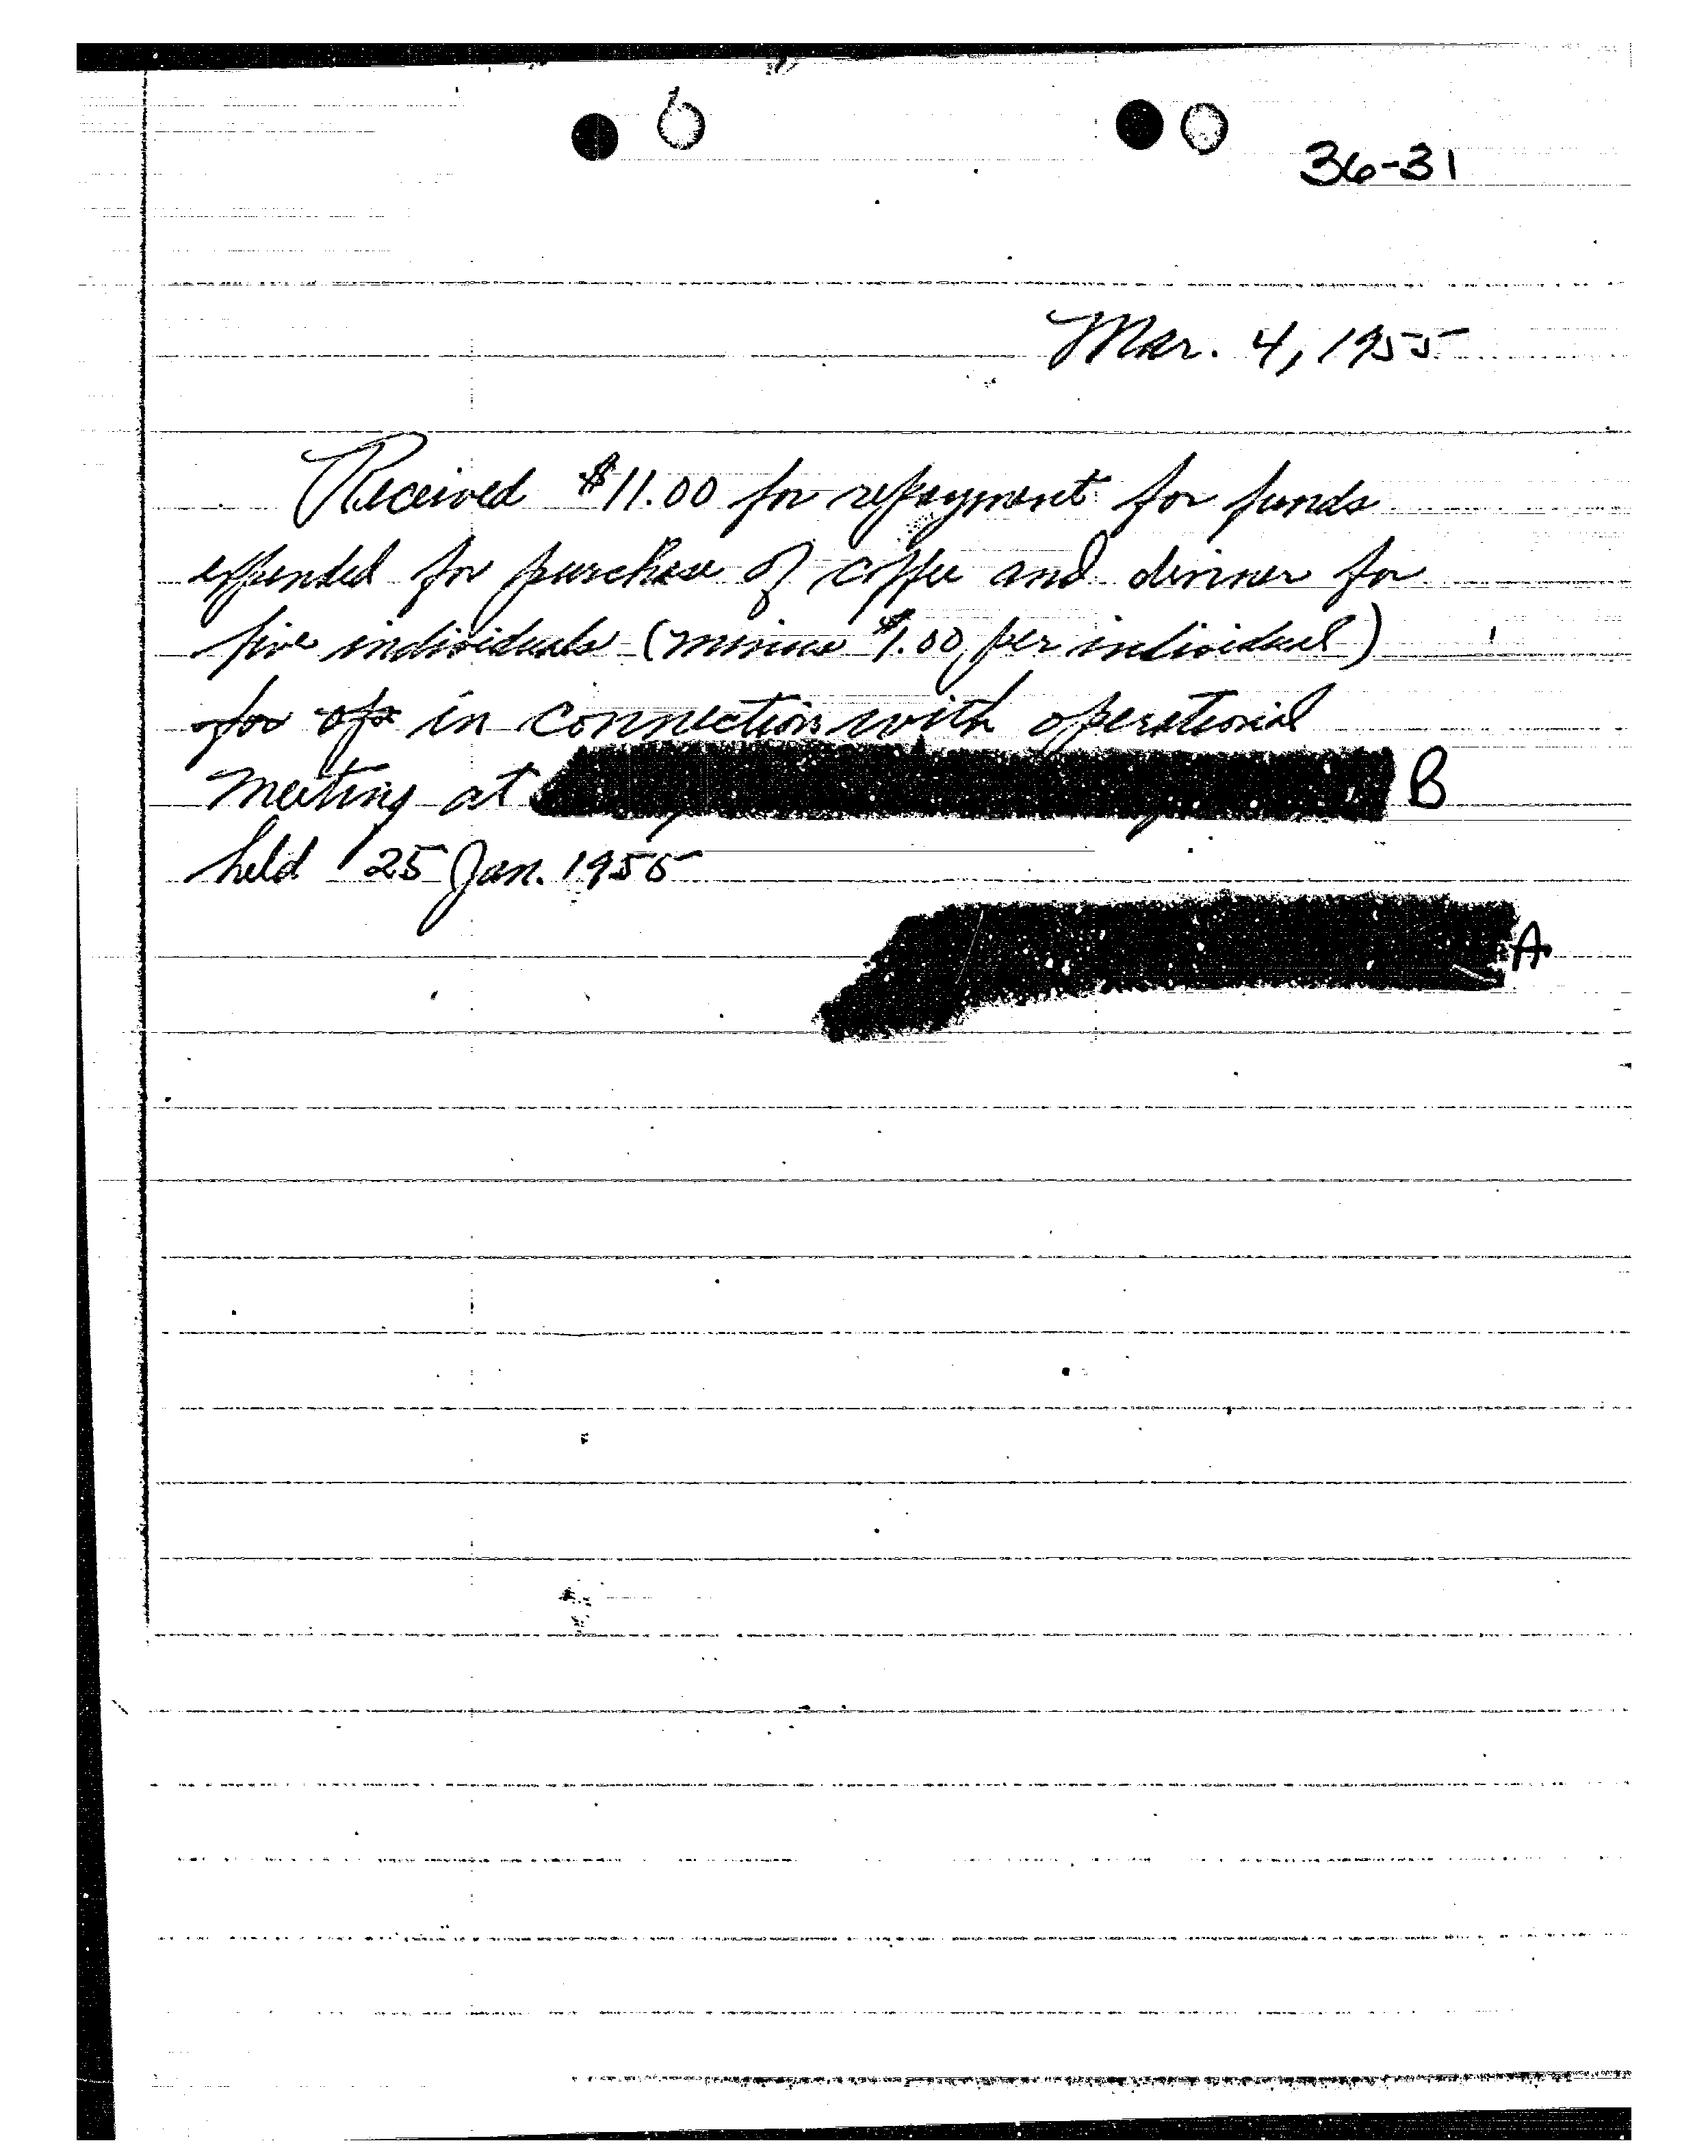 36-31
Mar. 4, 1955
Received $11.00 for repayment for funds
expended for purchase of coffee and dinner for
five individuals (minus $1.00 per individual)
for ops in connection with operational
meeting at B
held 25 Jan. 1955
A